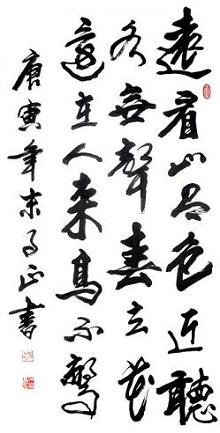 遠看山有色近聽
水無聲春去花
還在人来鳥不驚
庚寅年末正書